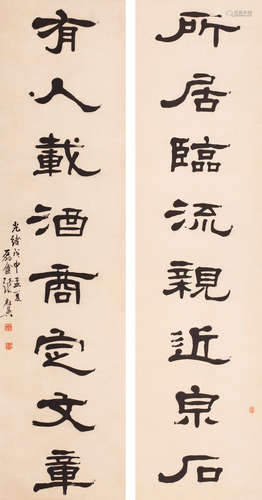 所居臨流親近泉石
有人載酒商定文章
光緒戊申孟夏